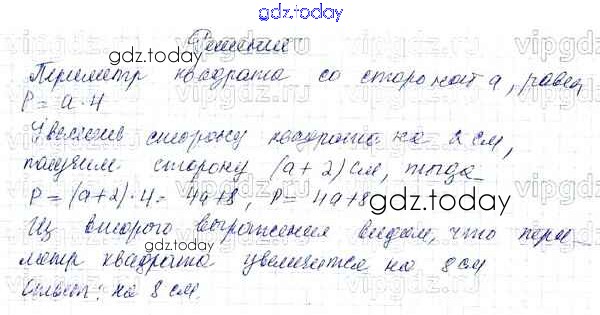 gdz.today
Решение
Периметр квадрата со стороной а, равен
P = a · 4
Увеличив сторону квадрата на 2 см,
получим сторону (а + 2) см, тогда
P = (a+2) · 4 = 4a+8, P = 4a+8
Из второго выражения видим, что пери-
метр квадрата увеличится на 8 см
Ответ: на 8 см.
gdz.today
gdz.today
gdz.today
gdz.today